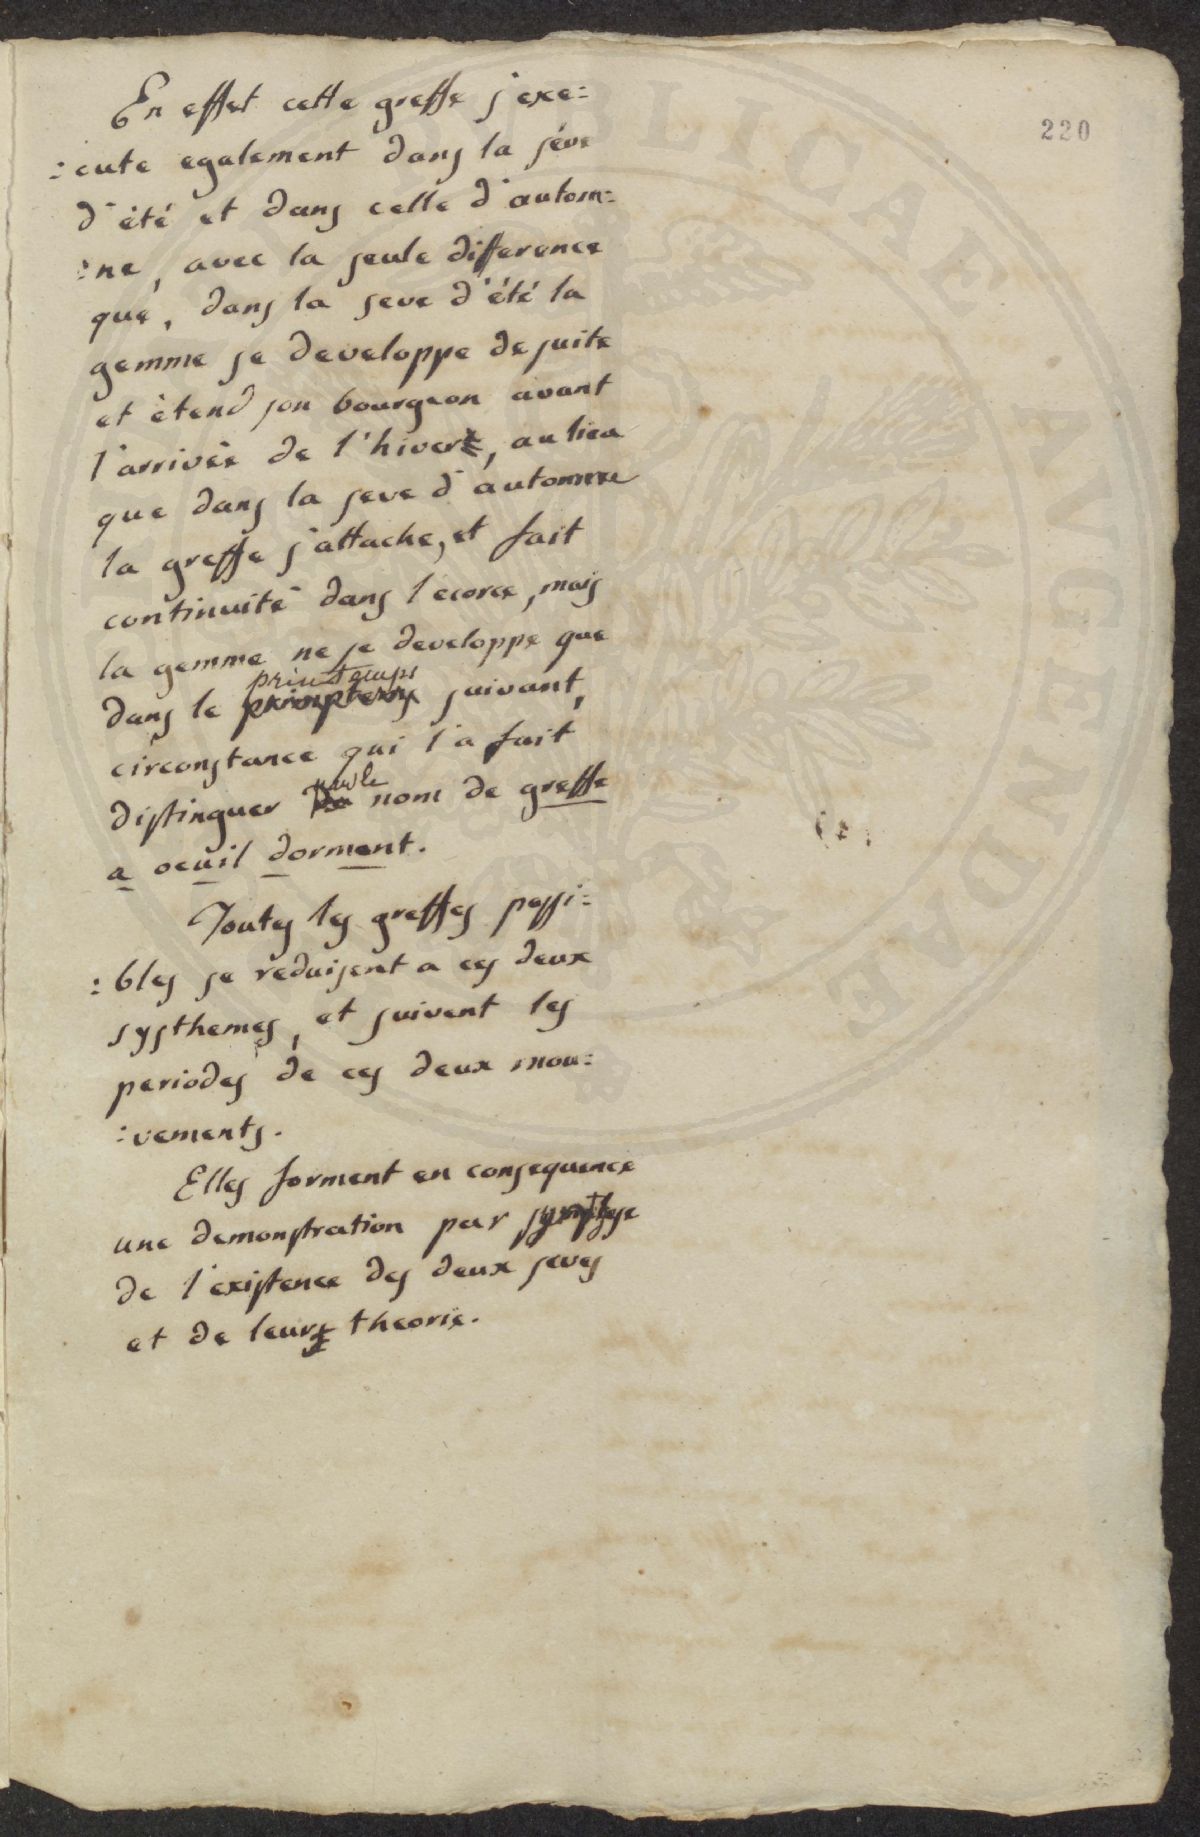 220
En effet cette greffe s'exe=
:cute egalement dans la séve
d'été et dans celle d'autom=
:ne, avec la seule difference
que, dans la seve d'été la
gemme se developpe de suite
et étend son bourgeon avant
l'arrivée de l'hiver, au lieu
que dans la seve d'automne
la greffe s'attache, et fait
continuité dans l'ecorce, mais
la gemme ne se developpe que
printemps
dans le primptems suivant,
circonstance qui l'a fait
par le
distinguer nom de greffe
a oeuil dorment.
Toutes les greffes possi=
:bles se reduisent a ces deux
systhemes, et suivent les
periodes de ces deux mou=
:vements.
Elles forment en consequence
une demonstration par synthese
de l'existence des deux seves
et de leur theorie.